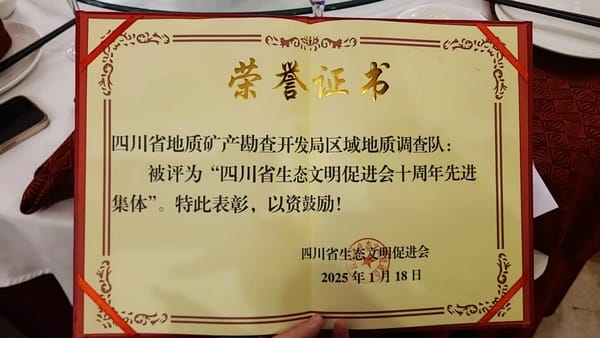 荣誉证书
四川省地质矿产勘查开发局区域地质调查队：
被评为“四川省生态文明促进会十周年先进
集体”。特此表彰，以资鼓励！
四川省生态文明促进会
2025年1月18日